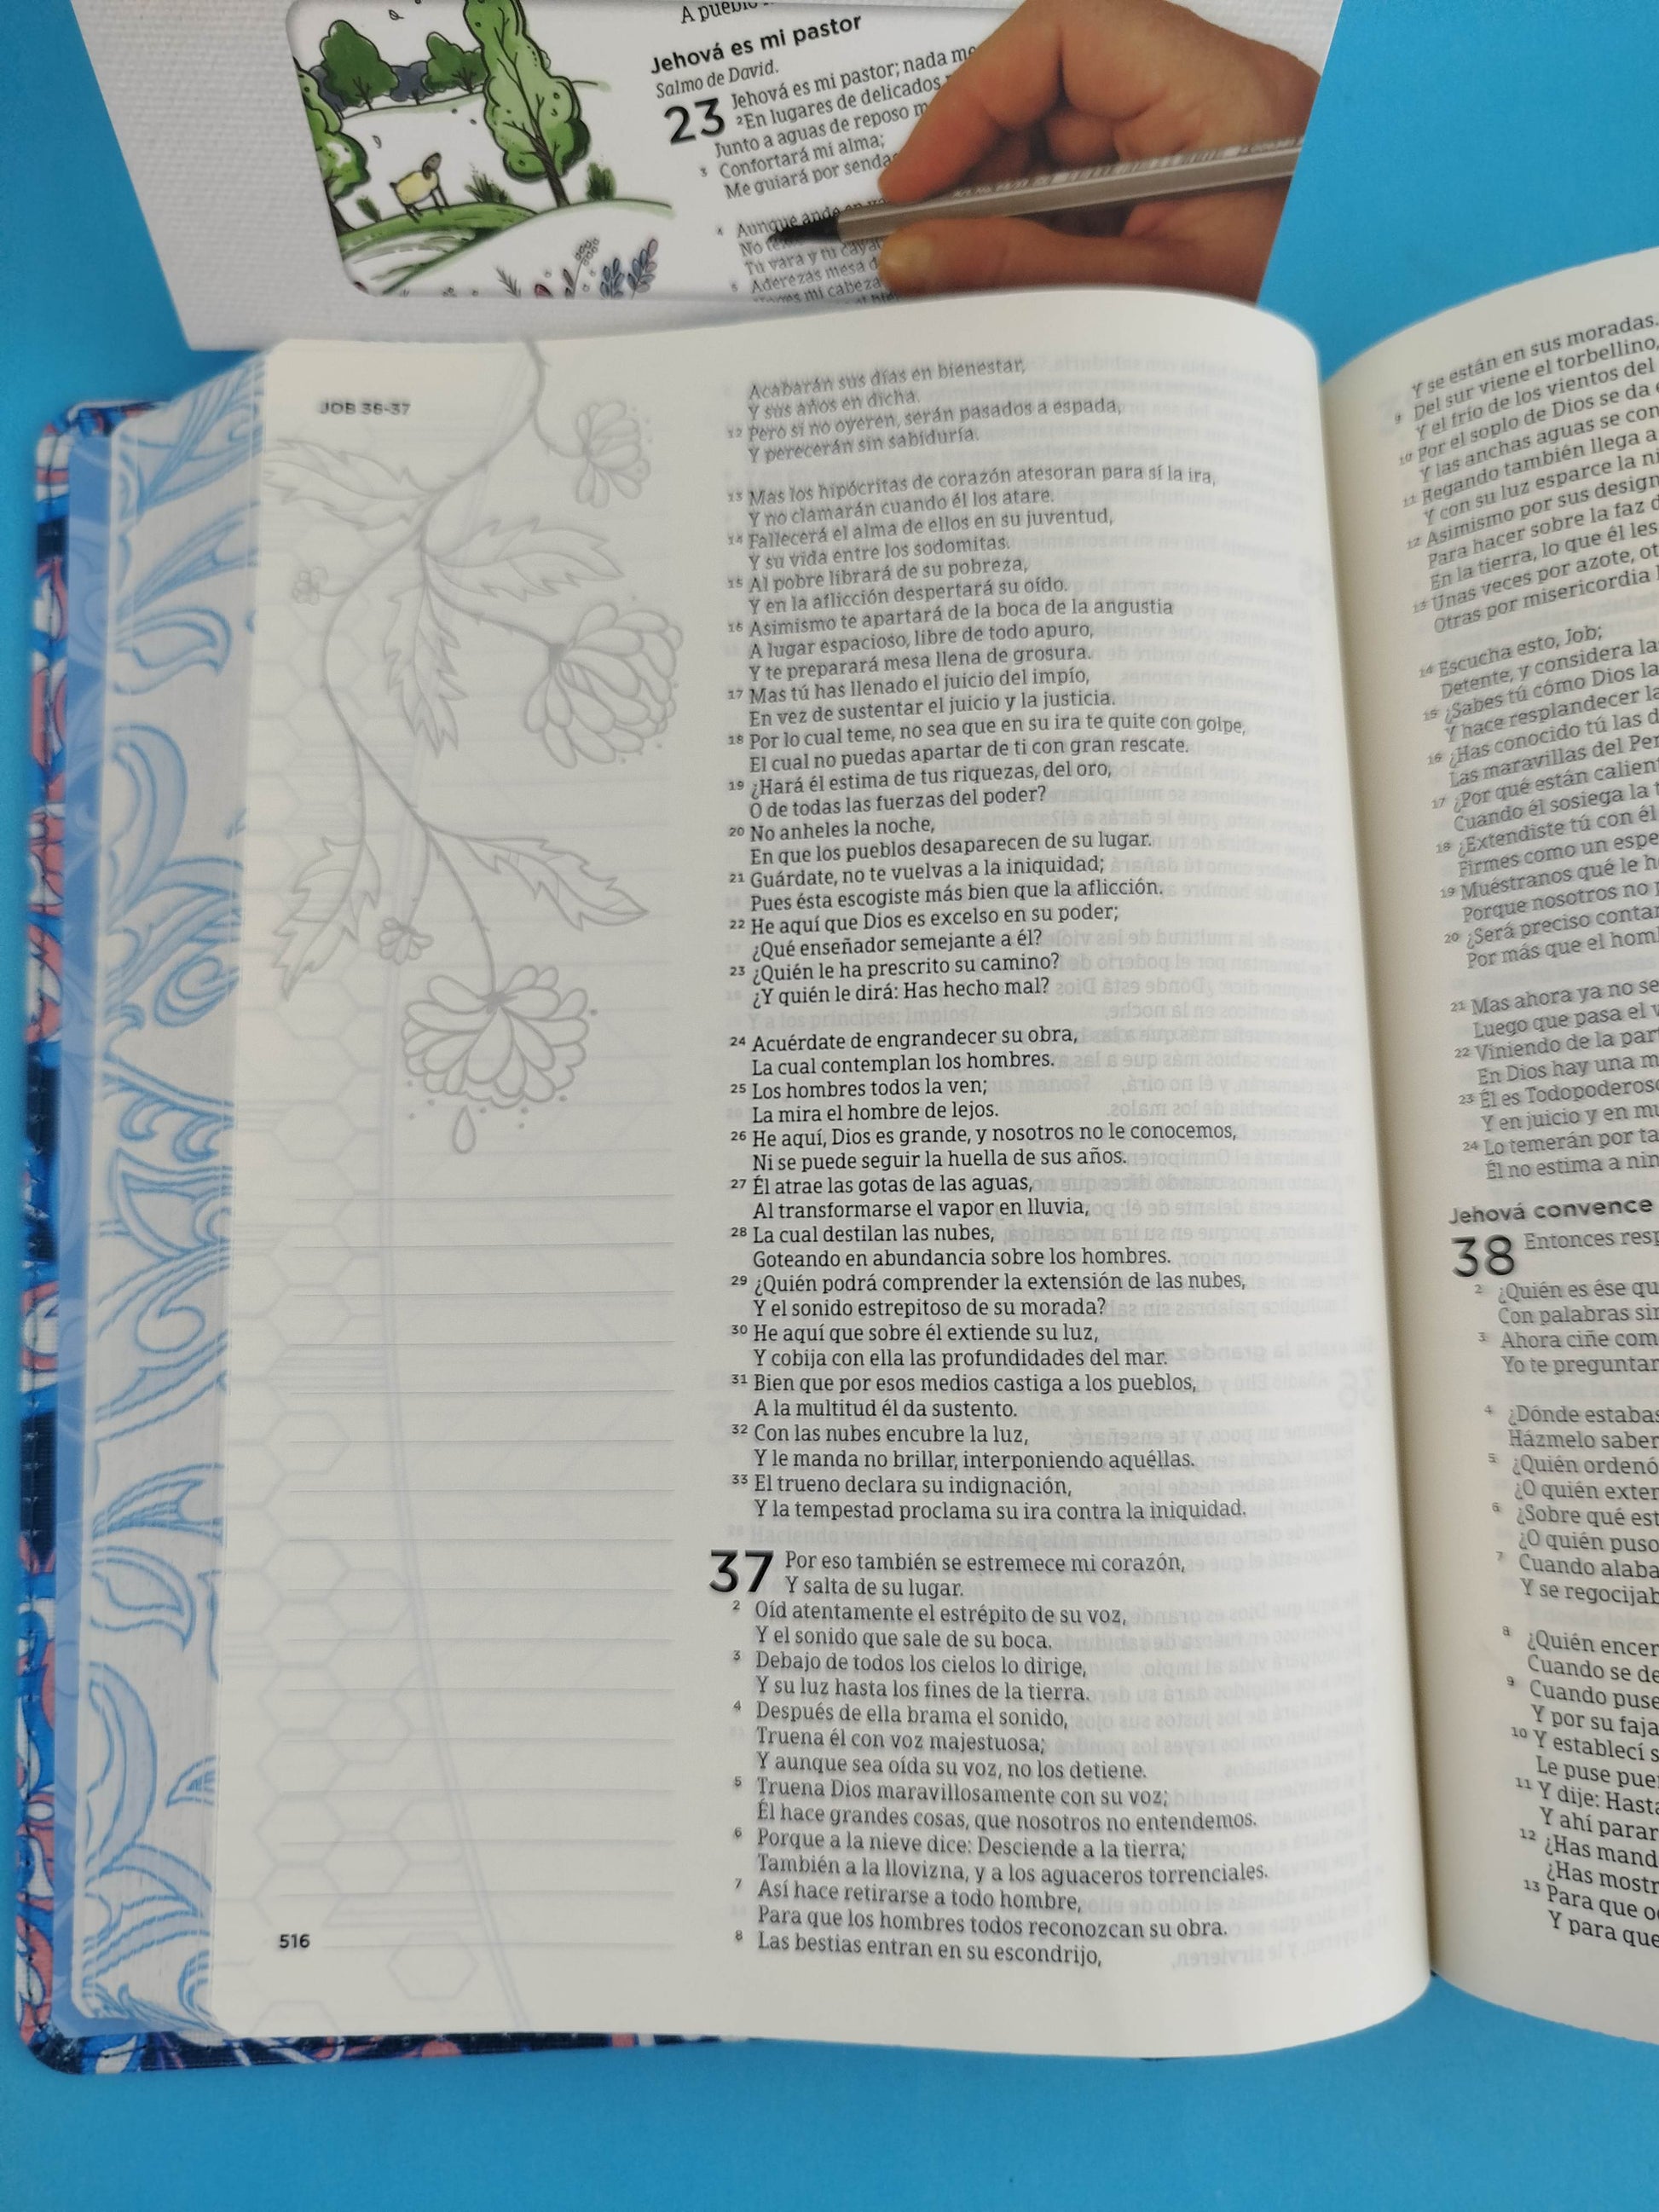 Jehová es mi pastor
Salmo de David.
23 Jehová es mi pastor; nada
²En lugares de delicados
Junto a aguas de reposo
3 Confortará mi alma;
Me guiará por
4 Aunque ande en
No
Tú vara y tu
5 Aderezas mesa
mi cabeza
JOB 36-37
Acabarán sus días en bienestar,
Y sus años en dicha.
12 Pero si no oyeren, serán pasados a espada,
Y perecerán sin sabiduría.
13 Mas los hipócritas de corazón atesoran para sí la ira,
Y no clamarán cuando él los atare.
14 Fallecerá el alma de ellos en su juventud,
Y su vida entre los sodomitas.
15 Al pobre librará de su pobreza,
Y en la aflicción despertará su oído.
16 Asimismo te apartará de la boca de la angustia
A lugar espacioso, libre de todo apuro,
Y te preparará mesa llena de grosura.
17 Mas tú has llenado el juicio del impío,
En vez de sustentar el juicio y la justicia.
18 Por lo cual teme, no sea que en su ira te quite con golpe,
El cual no puedas apartar de ti con gran rescate.
19 ¿Hará él estima de tus riquezas, del oro,
O de todas las fuerzas del poder?
20 No anheles la noche,
En que los pueblos desaparecen de su lugar.
21 Guárdate, no te vuelvas a la iniquidad;
Pues ésta escogiste más bien que la aflicción.
22 He aquí que Dios es excelso en su poder;
¿Qué enseñador semejante a él?
23 ¿Quién le ha prescrito su camino?
¿Y quién le dirá: Has hecho mal?
24 Acuérdate de engrandecer su obra,
La cual contemplan los hombres.
25 Los hombres todos la ven;
La mira el hombre de lejos.
26 He aquí, Dios es grande, y nosotros no le conocemos,
Ni se puede seguir la huella de sus años.
27 Él atrae las gotas de las aguas,
Al transformarse el vapor en lluvia,
28 La cual destilan las nubes,
Goteando en abundancia sobre los hombres.
29 ¿Quién podrá comprender la extensión de las nubes,
Y el sonido estrepitoso de su morada?
30 He aquí que sobre él extiende su luz,
Y cobija con ella las profundidades del mar.
31 Bien que por esos medios castiga a los pueblos,
A la multitud él da sustento.
32 Con las nubes encubre la luz,
Y le manda no brillar, interponiendo aquéllas.
33 El trueno declara su indignación,
Y la tempestad proclama su ira contra la iniquidad.
37 Por eso también se estremece mi corazón,
Y salta de su lugar.
2 Oíd atentamente el estrépito de su voz,
Y el sonido que sale de su boca.
3 Debajo de todos los cielos lo dirige,
Y su luz hasta los fines de la tierra.
4 Después de ella brama el sonido,
Truena él con voz majestuosa;
Y aunque sea oída su voz, no los detiene.
5 Truena Dios maravillosamente con su voz;
Él hace grandes cosas, que nosotros no entendemos.
6 Porque a la nieve dice: Desciende a la tierra;
También a la llovizna, y a los aguaceros torrenciales.
7 Así hace retirarse a todo hombre,
Para que los hombres todos reconozcan su obra.
8 Las bestias entran en su escondrijo,
516
Y se están en sus moradas.
9 Del sur viene el torbellino,
Y el frío de los vientos del
10 Por el soplo de Dios se da
Y las anchas aguas se
11 Regando también llega a
Y con su luz esparce la
12 Asimismo por sus
Para hacer sobre la faz
En la tierra, lo que él les
13 Unas veces por azote,
Otras por misericordia
14 Escucha esto, Job;
Detente, y considera
15 ¿Sabes tú cómo Dios
Y hace resplandecer
16 ¿Has conocido tú las
Las maravillas del
17 ¿Por qué están
Cuando él sosiega la
18 ¿Extendiste tú con él
Firmes como un
19 Muéstranos qué le
Porque nosotros no
20 ¿Será preciso
Por más que el
21 Mas ahora ya no se
Luego que pasa el
22 Viniendo de la
En Dios hay una
23 Él es
Y en juicio y en
24 Lo temerán por
Él no estima a
Jehová convence
38 Entonces
2 ¿Quién es ése
Con palabras
3 Ahora ciñe
Yo te
4 ¿Dónde
Házmelo saber
5 ¿Quién ordenó
¿O quién
6 ¿Sobre qué
¿O quién puso
7 Cuando
Y se
8 ¿Quién
Cuando se
9 Cuando
Y por su
10 Y establecí
Le puse
11 Y dije:
Y ahí
12 ¿Has
¿Has
13 Para que
Y para